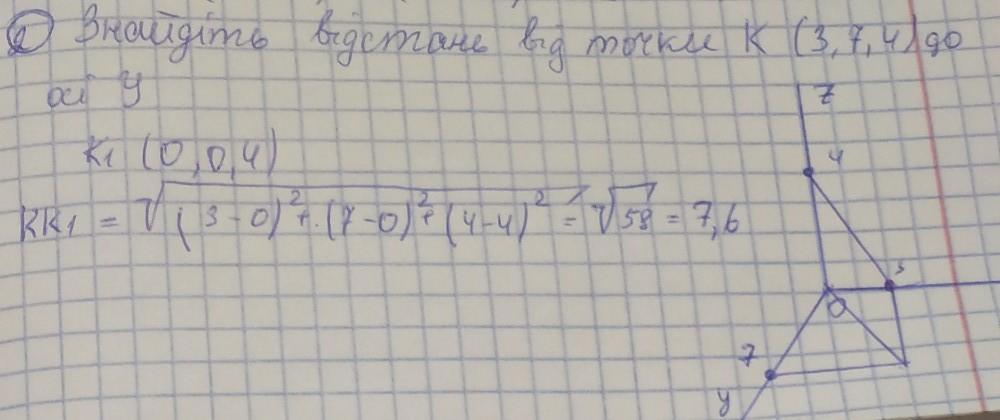 2 Знайдіть відстань від точки K (3,7,4) до
осі y
K1 (0,0,4)
KK1 = √(3-0)²+.(7-0)²+(4-4)² = √58 = 7,6
z
4
3
0
7
y